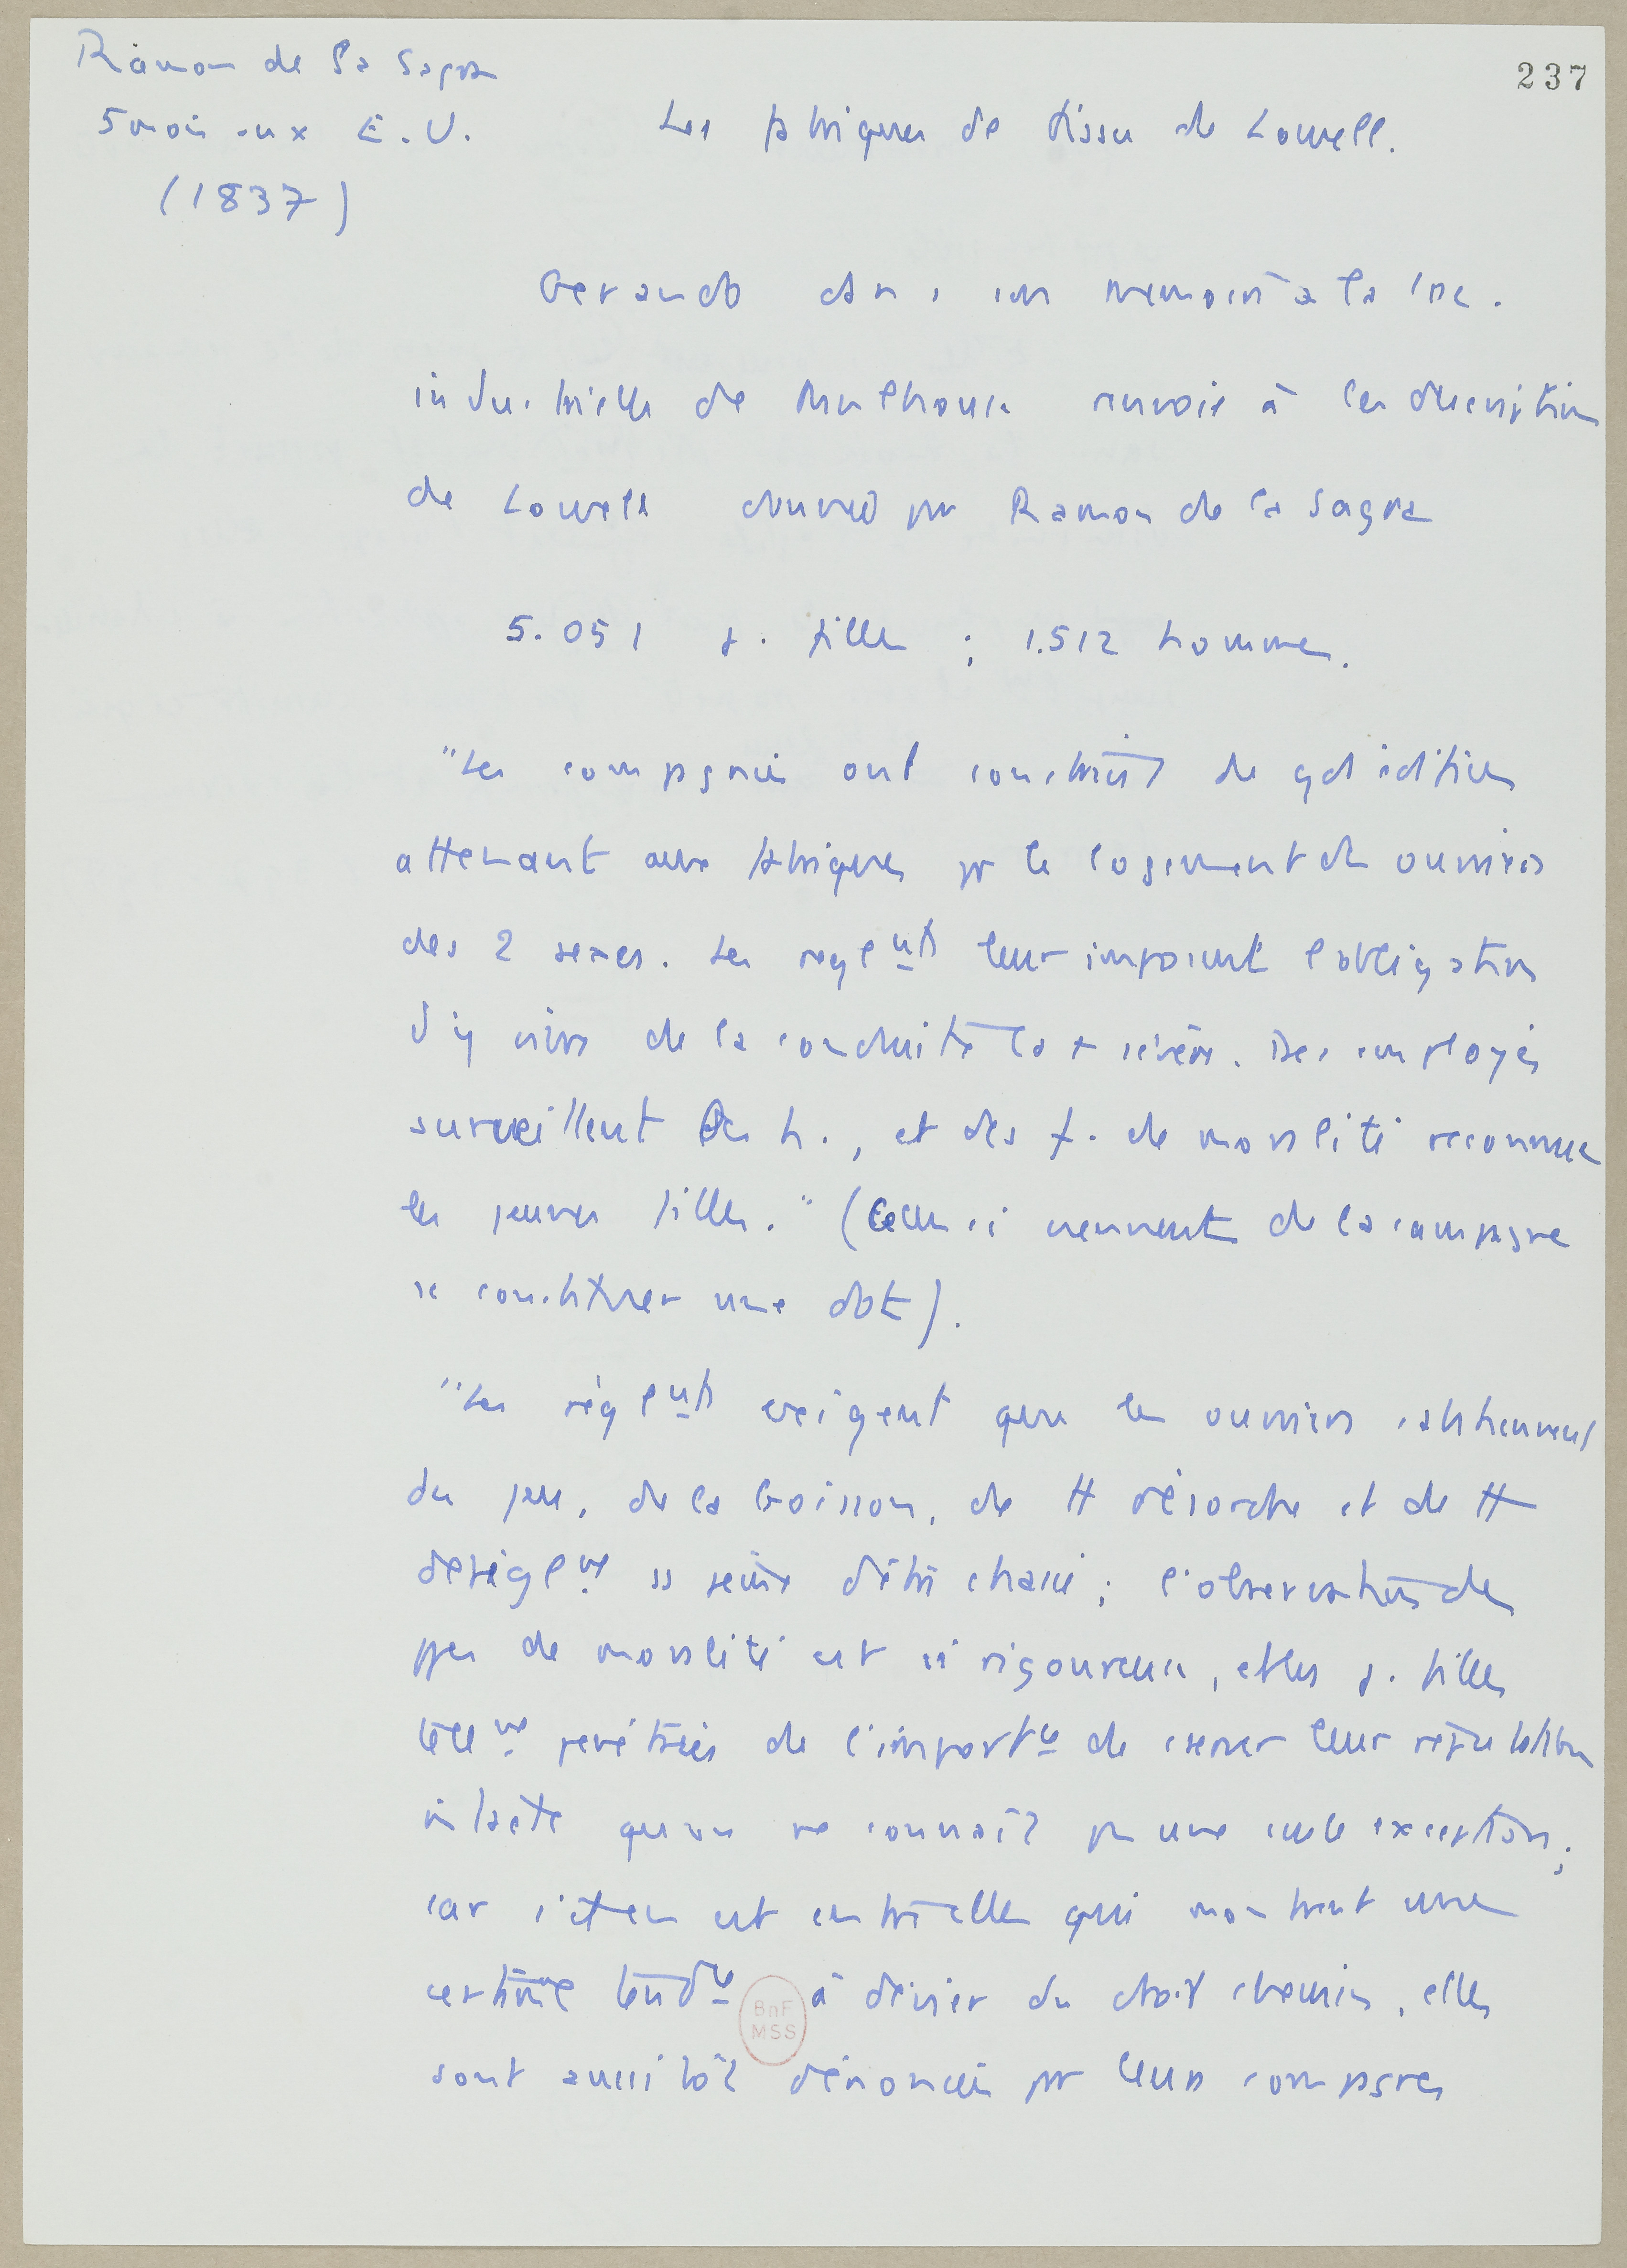 237
Ramon de la Sagra
5 mois aux E.U.
(1837)
Les fabriques de tissu de Lowell.
Gerando dans son memoire à la Soc.
industrielle de Mulhouse renvoie à la description
de Lowell donnée par Ramon de la Sagra
5.051 j. filles ; 1.512 hommes.
"Les compagnies ont construit de gds édifices
attenant aux fabriques pr le logement des ouvriers
des 2 sexes. Les reglnts leur imposent l'obligation
d'y vivre de la conduite la + sévère. Des employés
surveillent les h., et des f. de moralité reconnue
les jeunes filles." (Celles-ci viennent de la campagne
se constituer une dot).
"Les règlnts exigent que les ouvriers s'abstiennent
du jeu, de la boisson, de tt désordre et de tt
dérèglnt ss peine d'être chassé ; l'observation des
ppes de moralité est si rigoureuse, et les j. filles
tellnt pénétrées de l'importce de cserver leur réputation
intacte qu'on ne connaît pas une seule exception ;
car s'il en est entre elles qui montrent une
certaine tendce à dévier du droit chemin, elles
sont aussitôt dénoncées par leurs compagnes
BnF
MSS